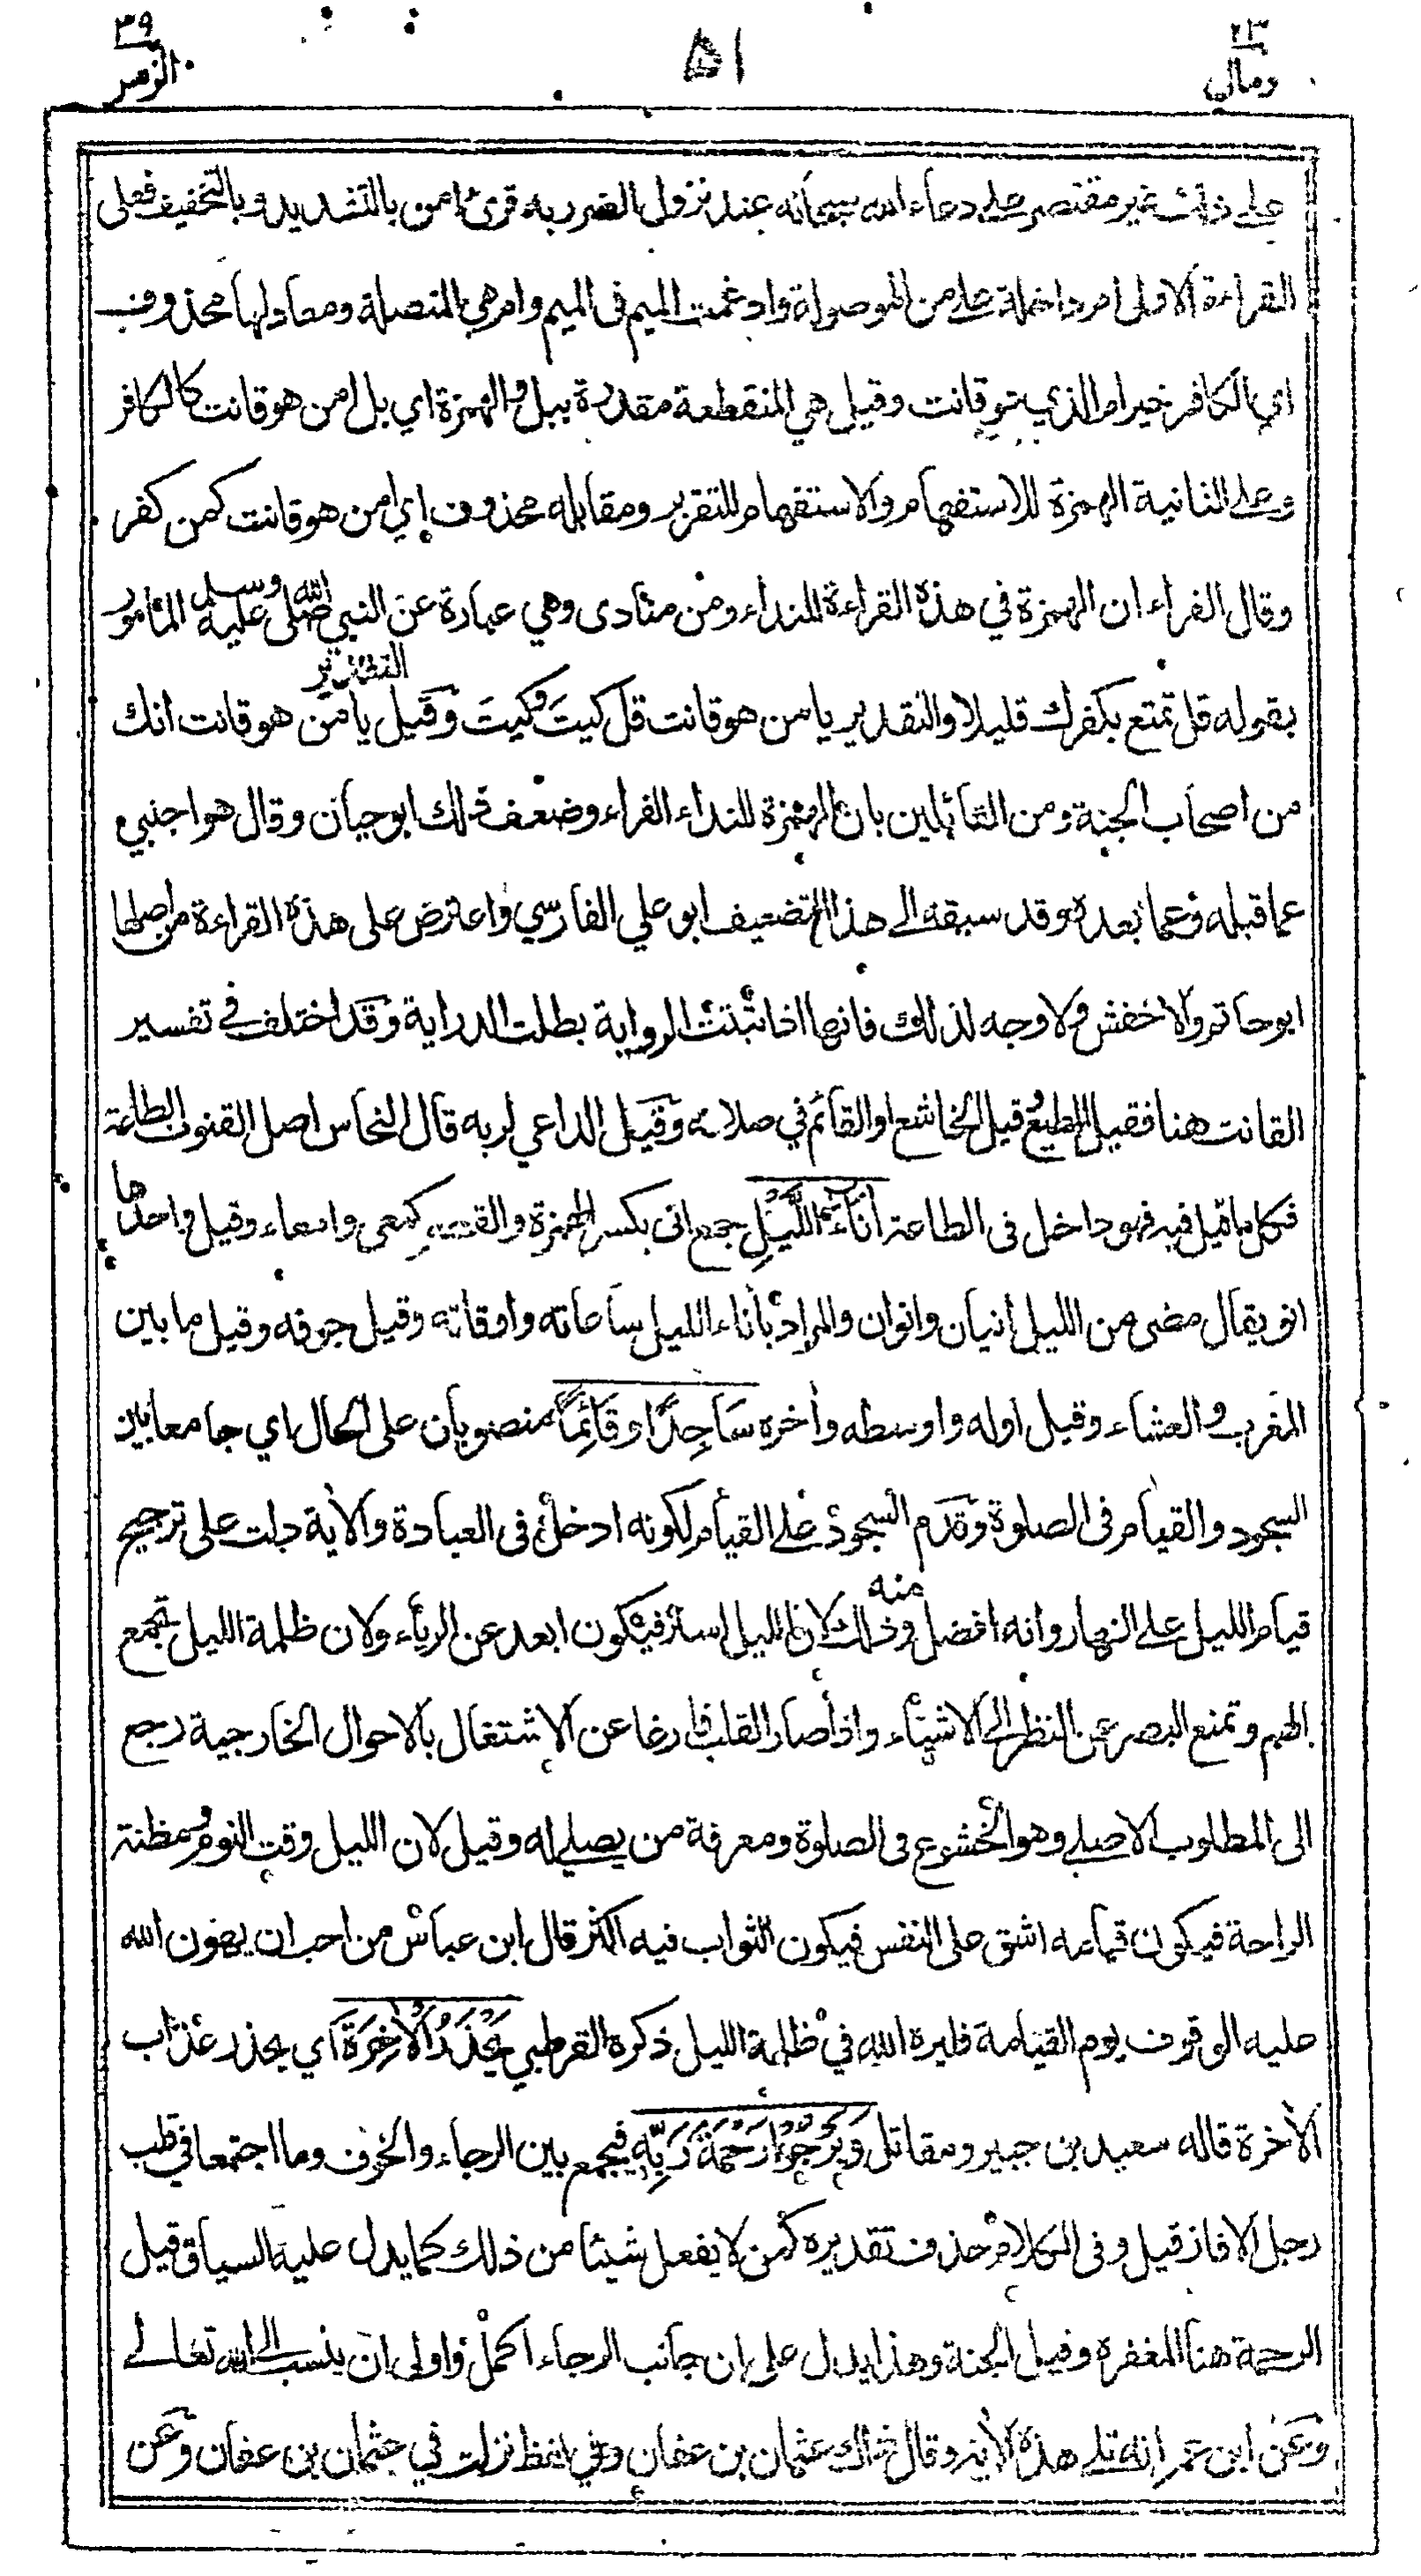 ٢٣
ومالي
٥١
٣٩
الزمر
على ذلك غير مقتصر على دعاء الله سبحانه عند نزول الضرر به قرئ امن بالتشديد وبالتخفيف فعلى
القراءة الاولى ام داخلة على من الموصولة وادغمت الميم في الميم وام هي المتصلة ومعادلها محذوف
اي الكافر خير ام الذي هو قانت وقيل هي المنقطعة مقدرة ببل والهمزة اي بل امن هو قانت كالكافر
وعلى الثانية الهمزة للاستفهام والاستفهام للتقرير ومقابله محذوف اي امن هو قانت كمن كفر
وقال الفراء ان الهمزة في هذه القراءة للنداء ومن منادى وهي عبارة عن النبي صلى الله عليه وسلم المأمور
بقوله قل تمتع بكفرك قليلا والتقدير يا من هو قانت قل كيتَ وكيتَ وقيل التقدير يا من هو قانت انك
من اصحاب الجنة ومن القائلين بان الهمزة للنداء الفراء وضعف ذلك ابو حيان وقال هو اجنبي
عما قبله وعما بعده وقد سبقه الى هذا التضعيف ابو علي الفارسي واعترض على هذه القراءة من اصلها
ابو حاتم والاخفش ولا وجه لذلك فانها اذا ثبتت الرواية بطلت الدراية وقد اختلف في تفسير
القانت هنا فقيل المطيع وقيل الخاشع او القائم في صلاته وقيل الداعي لربه قال النحاس اصل القنوت الطاعة
فكل ما قيل فيه فهو داخل في الطاعة اٰنَاءَ اللَّيْلِ جمع انى بكسر الهمزة والقصر كمعى وامعاء وقيل واحدها
انو يقال مضى من الليل انيان وانوان والمراد بأناء الليل ساعاته واوقاته وقيل جوفه وقيل ما بين
المغرب والعشاء وقيل اوله واوسطه وأخره سَاجِدًا وَّقَائِمًا منصوبان على الحال اي جامعا بين
السجود والقيام في الصلوة وقدم السجود على القيام لكونه ادخل في العبادة والأية دلت على ترجيح
قيام الليل على النهار وانه افضل منه وذلك لان الليل استر فيكون ابعد عن الرياء ولان ظلمة الليل تجمع
الهم وتمنع البصر عن النظر الى الاشياء واذا صار القلب فارغا عن الاشتغال بالاحوال الخارجية رجع
الى المطلوب الاصلي وهو الخشوع في الصلوة ومعرفة من يصلي له وقيل لان الليل وقت النوم ومظنة
الراحة فيكون قيامه اشق على النفس فيكون الثواب فيه اكثر قال ابن عباس من احب ان يهون الله
عليه الوقوف يوم القيامة فليره الله في ظلمة الليل ذكره القرطبي يَحْذَرُ الْاٰخِرَةَ اي يحذر عذاب
الأخرة قاله سعيد بن جبير ومقاتل وَيَرْجُوْا رَحْمَةَ رَبِّهِ فيجمع بين الرجاء والخوف وما اجتمعا في قلب
رجل الا فاز قيل وفي الكلام حذف تقديره كمن لا يفعل شيئا من ذلك كما يدل عليه السياق قيل
الرحمة هنا المغفرة وقيل الجنة وهذا يدل على ان جانب الرجاء اكمل واولى ان ينسب الى الله تعالى
وعن ابن عمر انه تلى هذه الأية وقال ذاك عثمان بن عفان وفي لفظ نزلت في عثمان بن عفان وعن